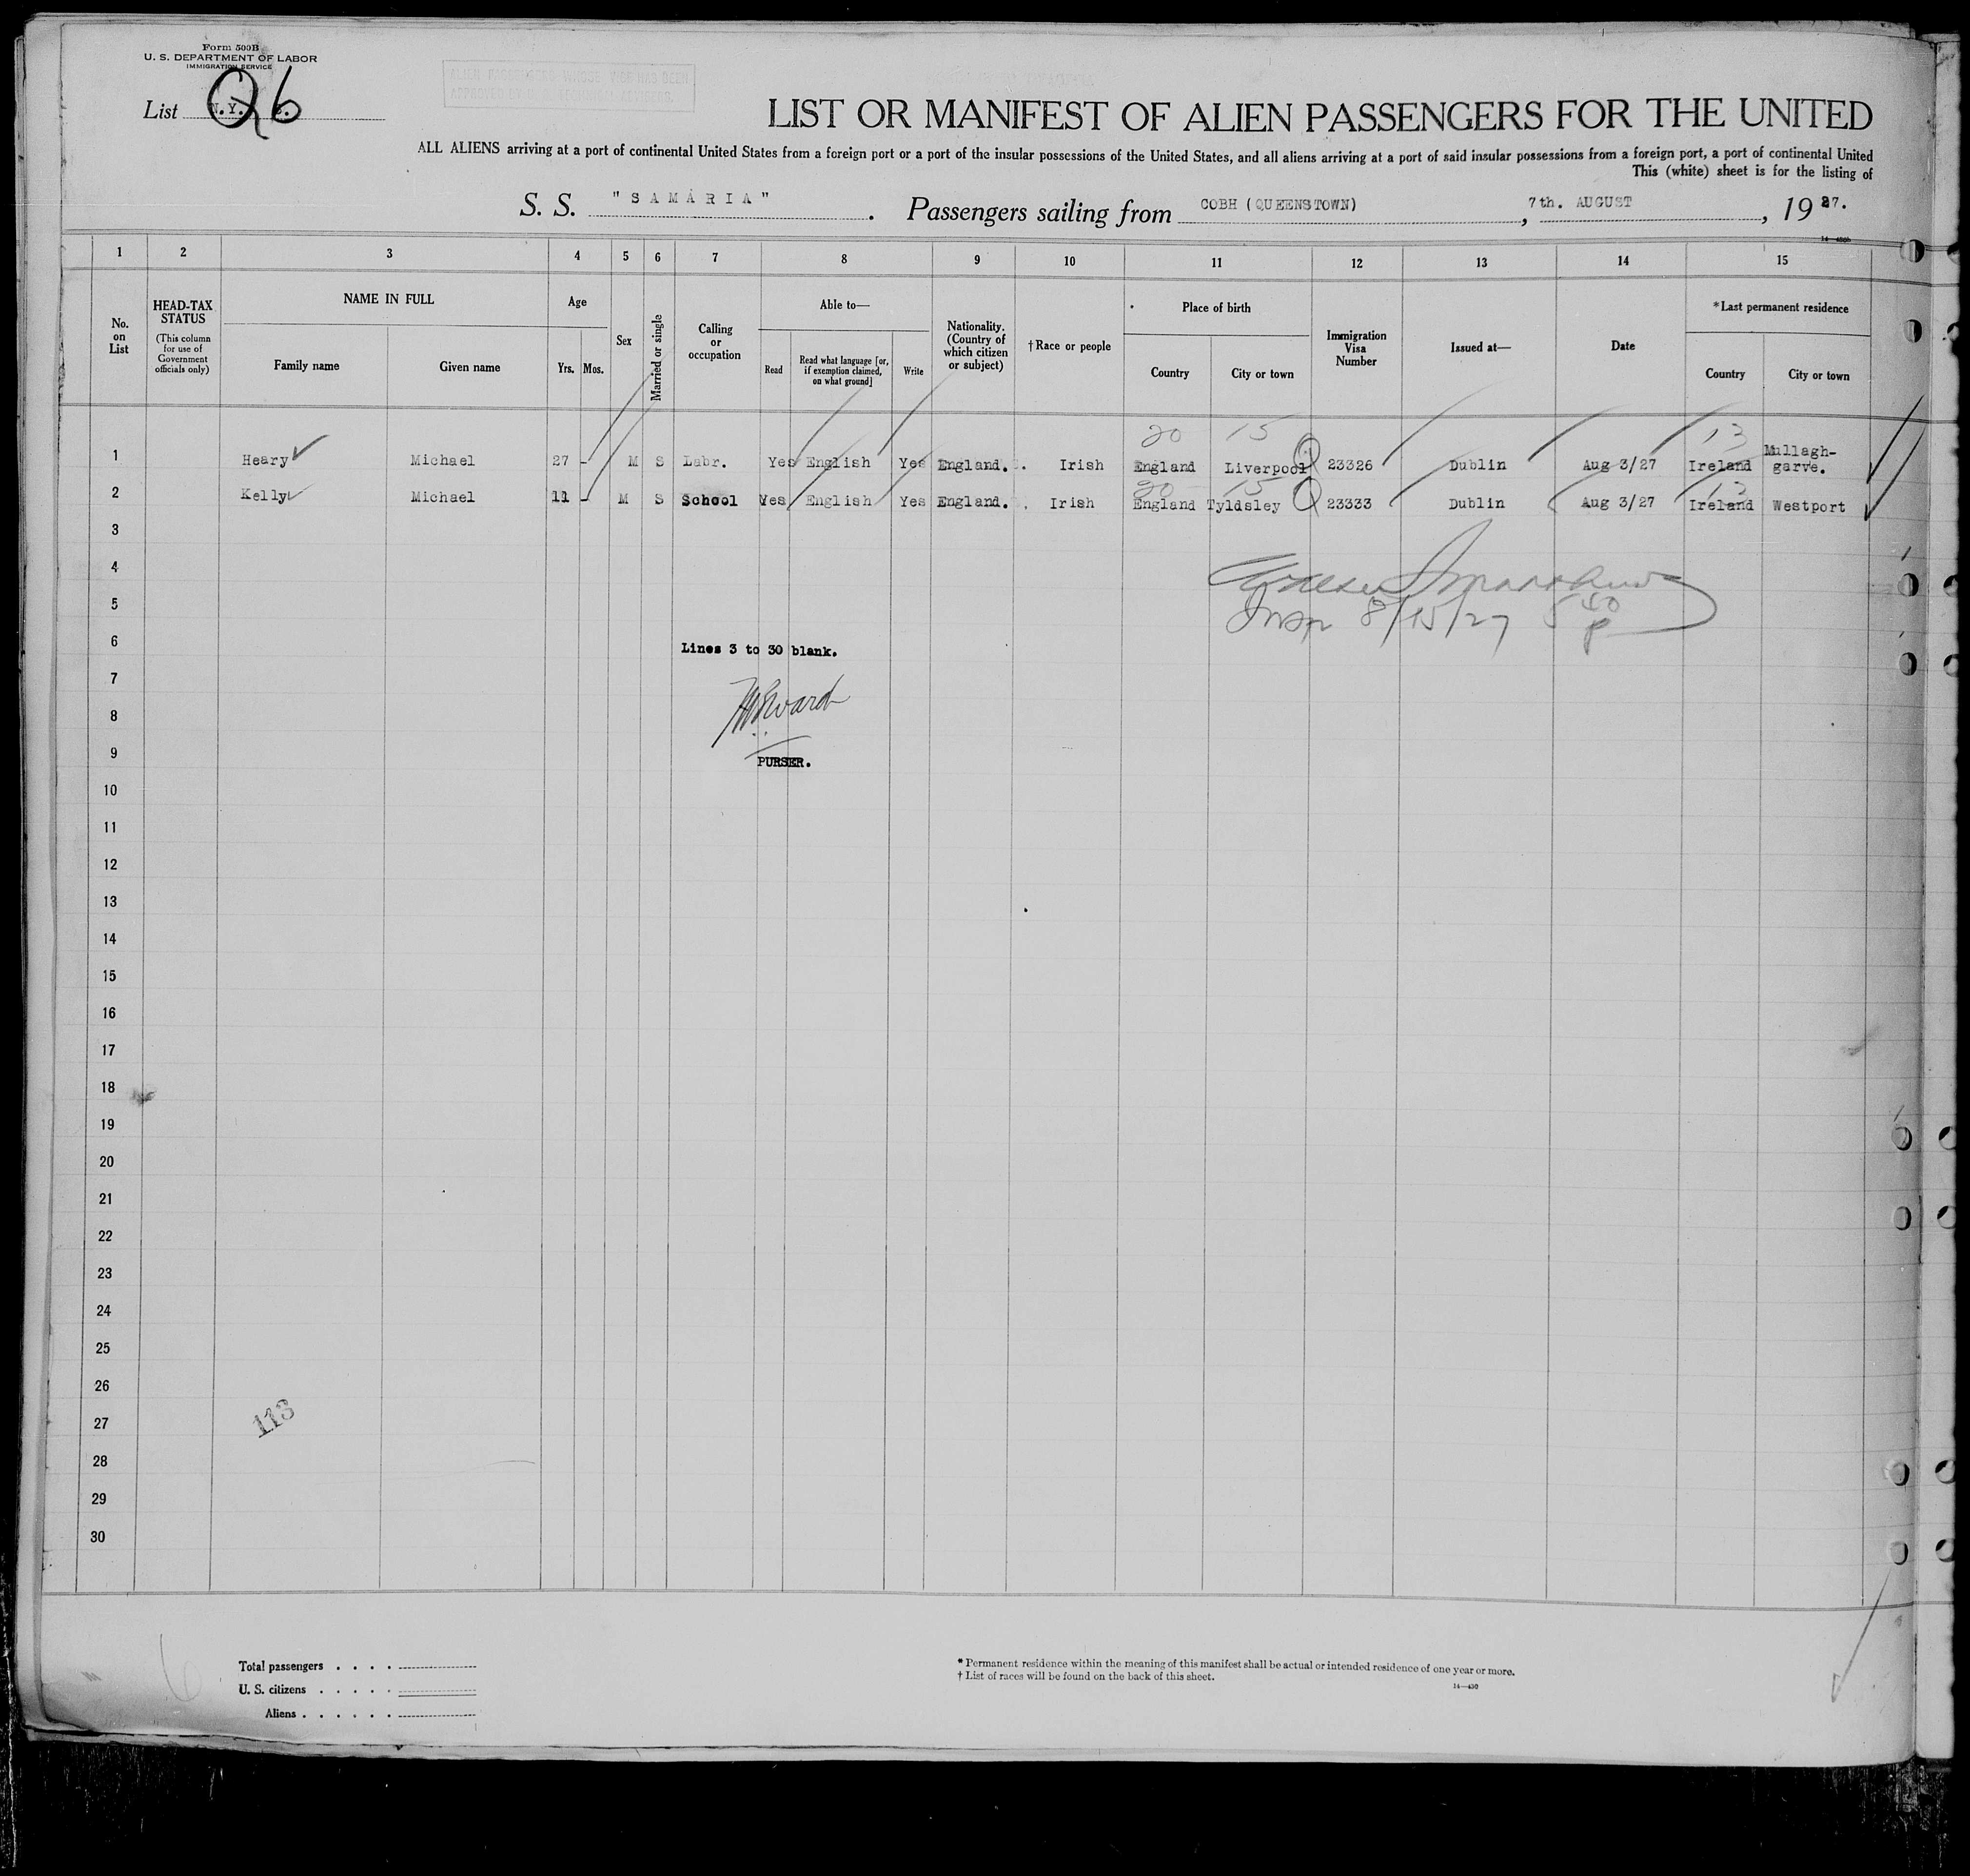 Form 500B
U. S. DEPARTMENT OF LABOR
IMMIGRATION SERVICE
ALIEN PASSENGERS WHOSE VISA HAS BEEN
List N.Y. 26
LIST OR MANIFEST OF ALIEN PASSENGERS FOR THE UNITED
ALL ALIENS arriving at a port of continental United States from a foreign port or a port of the insular possessions of the United States, and all aliens arriving at a port of said insular possessions from a foreign port, a port of continental United
This (white) sheet is for the listing of
S. S. "SAMARIA". Passengers sailing from COBH (QUEENSTOWN), 7th. AUGUST, 1927.
1 2 3 4 5 6 7 8 9 10 11 12 13 14 15
No. on List
HEAD-TAX STATUS
(This column for use of Government officials only)
NAME IN FULL
Family name
Given name
Age
Yrs.
Mos.
Sex
Married or single
Calling or occupation
Able to—
Read
Read what language [or, if exemption claimed, on what ground]
Write
Nationality. (Country of which citizen or subject)
† Race or people
Place of birth
Country
City or town
Immigration Visa Number
Issued at—
Date
* Last permanent residence
Country
City or town
20 15 13
1 Heary Michael 27 - M S Labr. Yes English Yes England. Irish England Liverpool 23326 Dublin Aug 3/27 Ireland Mullagh-garve.
20 15 13
2 Kelly Michael 11 - M S School Yes English Yes England. Irish England Tyldsley 23333 Dublin Aug 3/27 Ireland Westport
3
4
5
Insp 8/15/27 5 40 P
6
Lines 3 to 30 blank.
7
8
9
PURSER.
10
11
12
13
14
15
16
17
18
19
20
21
22
23
24
25
26
27
113
28
29
30
6
Total passengers . . . .
U. S. citizens . . . . .
Aliens . . . . . .
* Permanent residence within the meaning of this manifest shall be actual or intended residence of one year or more.
† List of races will be found on the back of this sheet.
14—430